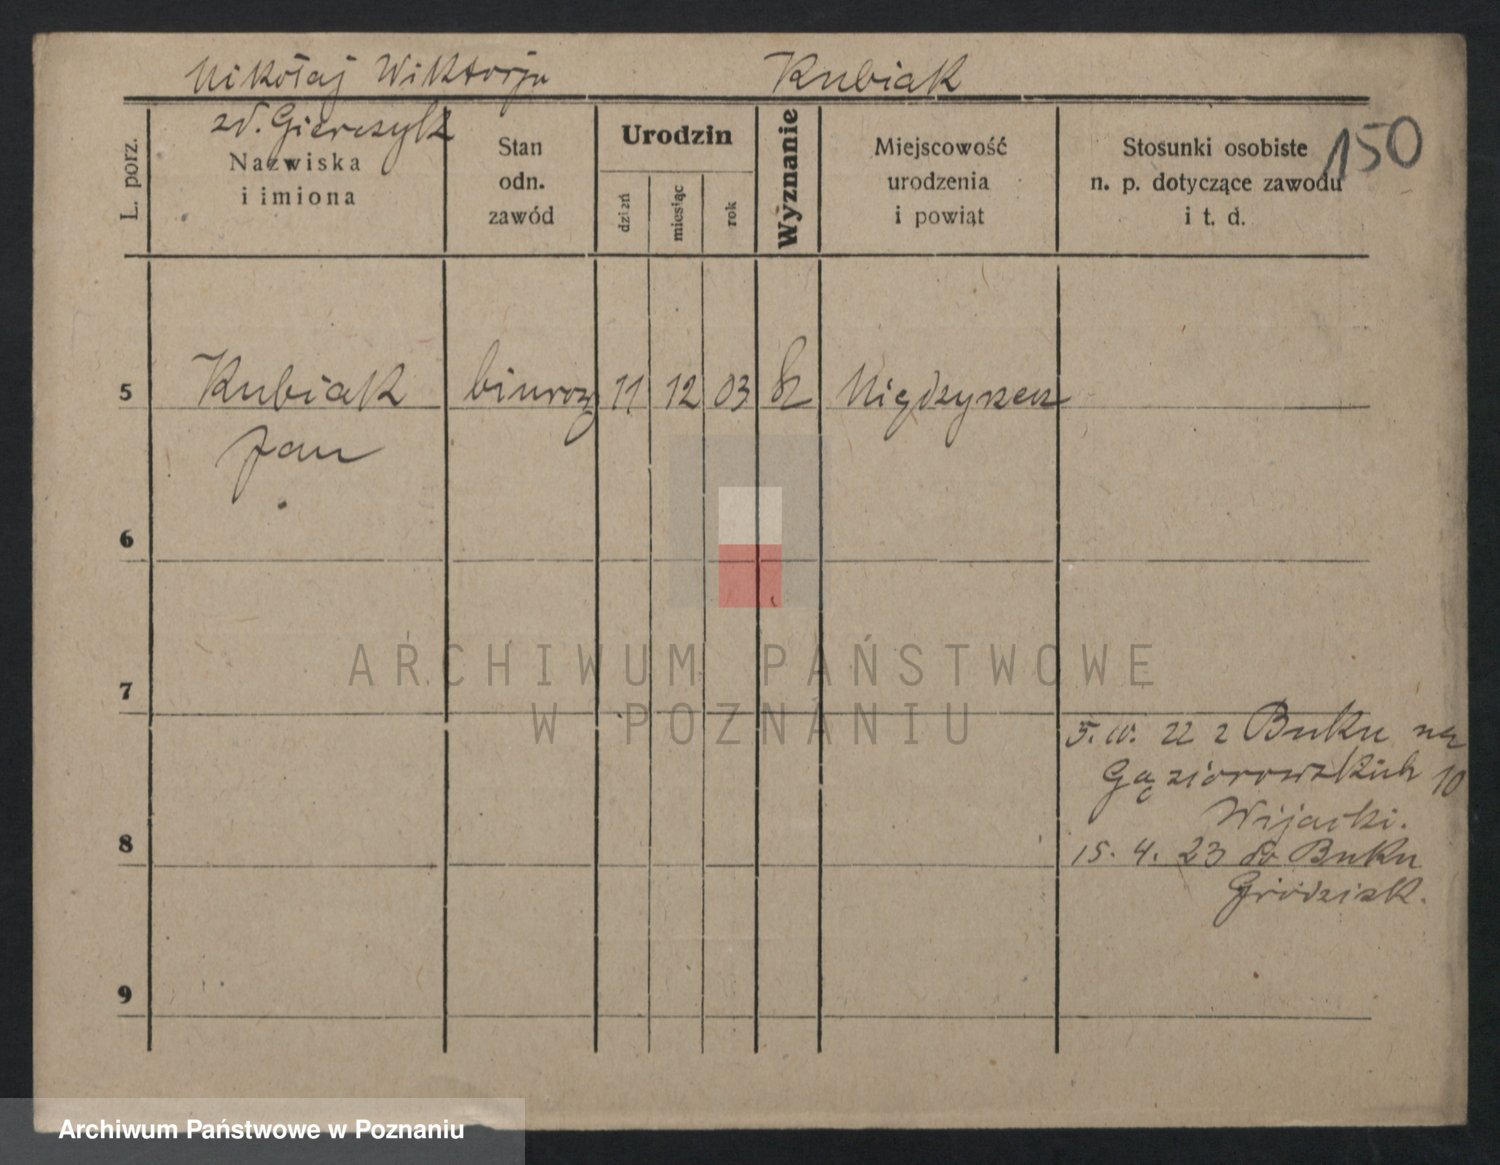 Mikołaj Wiktorja Kubiak
zd. Gierczyk
150
L. porz.
Nazwiska
i imiona
Stan
odn.
zawód
Urodzin
dzień
miesiąc
rok
Wyznanie
Miejscowość
urodzenia
i powiat
Stosunki osobiste
n. p. dotyczące zawodu
i t. d.
5 Kubiak 11 12 03
Jan
6
7
8
9
22 z Buku na
10
15. 4. 23 do Buku
Grodzisk.
ARCHIWUM PAŃSTWOWE
W POZNANIU
Archiwum Państwowe w Poznaniu